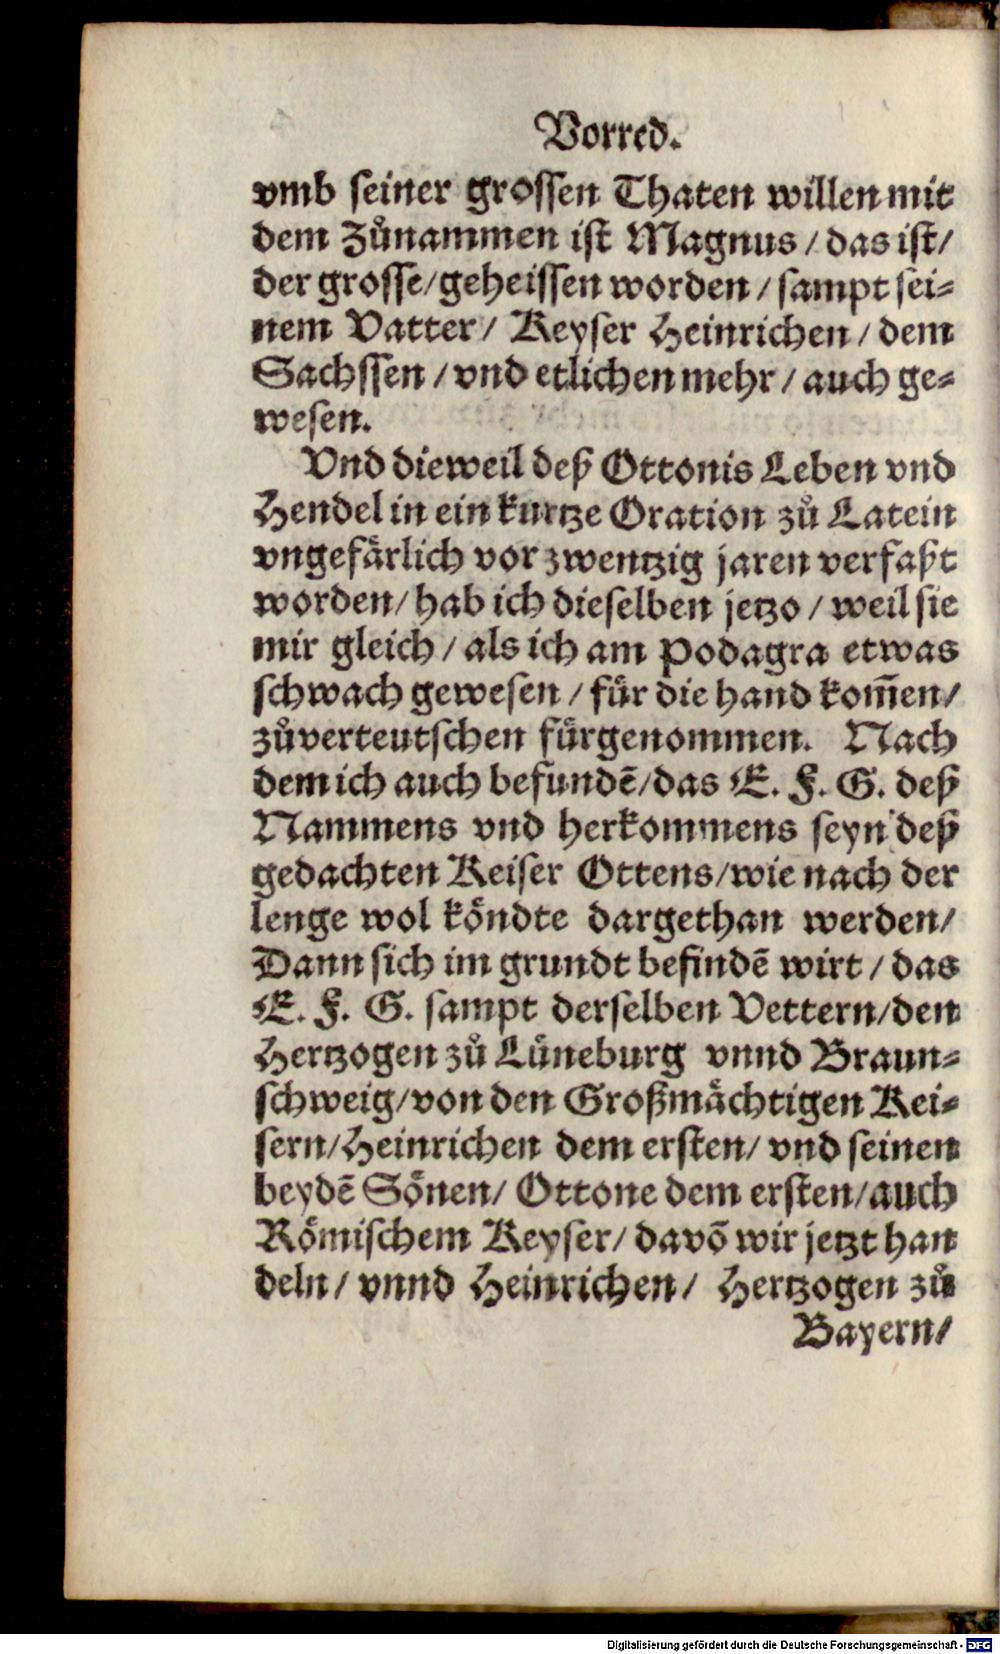 Vorred.
vmb seiner grossen Thaten willen mit
dem Zůnammen ist Magnus / das ist/
der grosse/geheissen worden / sampt sei⸗
nem Vatter/ Keyser Heinrichen / dem
Sachssen / vnd etlichen mehr / auch ge⸗
wesen.
Vnd dieweil deß Ottonis Leben vnd
Hendel in ein kurtze Oration zů Latein
vngefaͤrlich vor zwentzig jaren verfaßt
worden/ hab ich dieselben jetzo / weil sie
mir gleich / als ich am Podagra etwas
schwach gewesen / fuͤr die hand kom̃en/
zůverteutschen fuͤrgenommen. Nach
dem ich auch befundē/das E. F. G. deß
Nammens vnd herkommens seyn deß
gedachten Keiser Ottens/wie nach der
lenge wol koͤndte dargethan werden/
Dann sich im grundt befindē wirt / das
E. F. G. sampt derselben Vettern/den
Hertzogen zů Luͤneburg vnnd Braun⸗
schweig/von den Großmaͤchtigen Kei⸗
sern/Heinrichen dem ersten/ vnd seinen
beydē Soͤnen/ Ottone dem ersten/auch
Roͤmischem Keyser/ davō wir jetzt han
deln/ vnnd Heinrichen/ Hertzogen zů
Bayern/
Digitalisierung gefördert durch die Deutsche Forschungsgemeinschaft - DFG